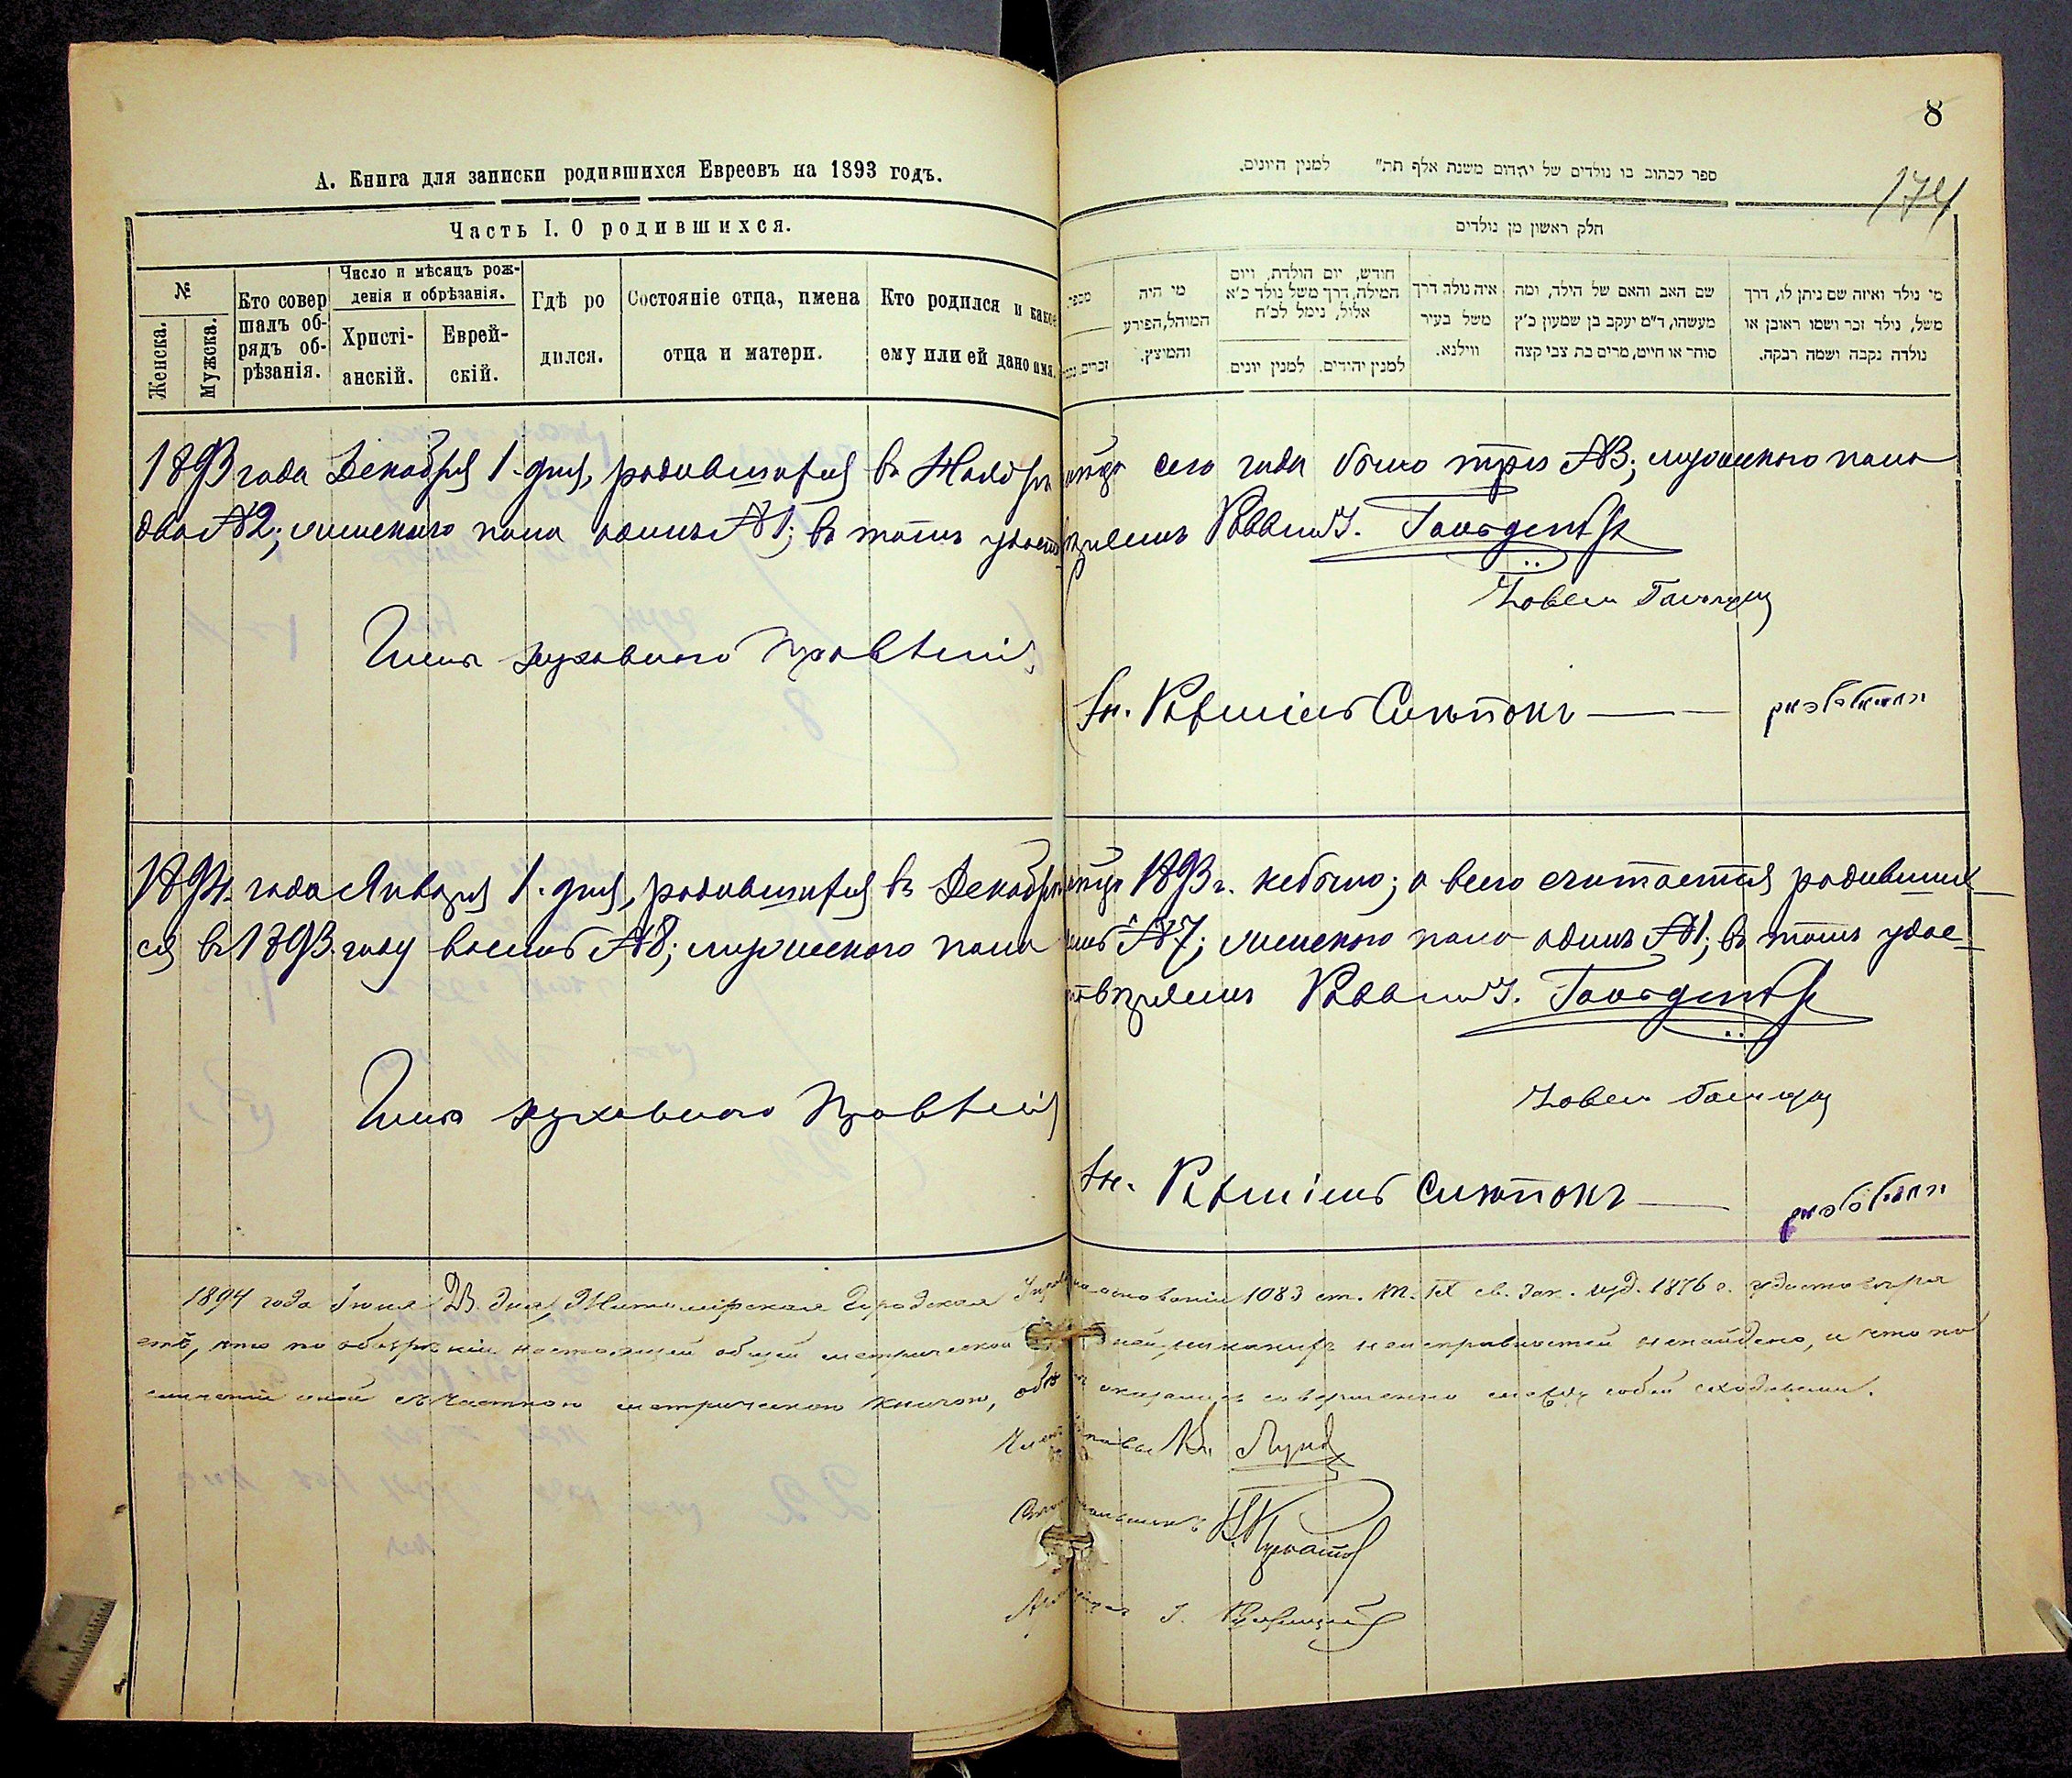 8
174
А. Книга для записки родившихся Евреевъ на 1893 годъ.
ספר לכתוב בו נולדים של יהדום משנת אלף תת״ למנין היונים.
Часть I. О родившихся.
חלק ראשון מן נולדים
№
Женска.
Мужска.
Кто совер
шалъ об-
рядъ об-
рѣзанія.
Число и мѣсяцъ рож-
денія и обрѣзанія.
Христі-
анскій.
Еврей-
скій.
Гдѣ ро
дился.
Состояніе отца, имена
отца и матери.
Кто родился и какое
ему или ей дано имя.
מספר
זכרים.
מי היה
המוהל, הפורע
והמוצץ.
חודש, יום הולדת, ויום
המילה, דרך משל נולד כ״א
אלול, נימל לכ״ח
למנין יונים.
למנין יהודים.
איה נולד דרך
משל בעיר
ווילנא.
שם האב והאם של הילד, ומה
מעשהו, ד״מ יעקב בן שמעון כ״ץ
סוחר או חייט, מרים בת צבי קצה
מי נולד ואיזה שם ניתן לו, דרך
משל, נולד זכר ושמו ראובן או
נולדה נקבה ושמה רבקה.
1893 года Декабря 1. дня, родившихся въ Ноябрѣ мѣсяцѣ сего года было трое №3; мужескаго пола
два №2; женскаго пола одинъ №1; въ томъ удостовѣряемъ Раввинъ
Членъ духовнаго Правленія
1894. года Января 1. дня, родившихся въ Декабрѣ мѣсяцѣ 1893 г. небыло; а всего считается родивших-
ся въ 1893. году восемь №8; мужескаго пола семь №7; женскаго пола одинъ №1; въ томъ удос-
товѣряемъ Раввинъ
Членъ духовнаго Правленія
1894 года Іюня 23 дня, Житомірская Городская Управа на основаніи 1083 ст. т. IX св. зак. изд. 1876 г. удостовѣря
етъ, что по обозрѣніи настоящей общей метрической никакихъ неисправностей ненайдено, и что по
сличеніи оной съ частною метрическою книгою, обѣ оказались совершенно между собой сходными.